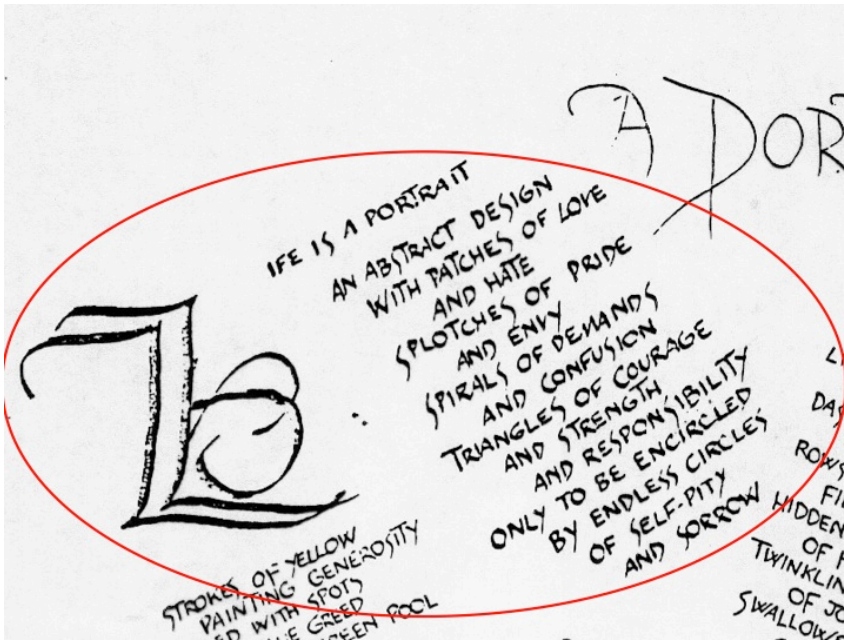 A POR
LIFE IS A PORTRAIT
AN ABSTRACT DESIGN
WITH PATCHES OF LOVE
AND HATE
SPLOTCHES OF PRIDE
AND ENVY
SPIRALS OF DEMANDS
AND CONFUSION
TRIANGLES OF COURAGE
AND STRENGTH
AND RESPONSIBILITY
ONLY TO BE ENCIRCLED
BY ENDLESS CIRCLES
OF SELF-PITY
AND SORROW
STROKES OF YELLOW
PAINTING GENEROSITY
ED WITH SPOTS
GREED
REEN POOL
DAS
ROWS
FI
HIDDEN
OF
TWINKLIN
OF JO
SWALLOWS